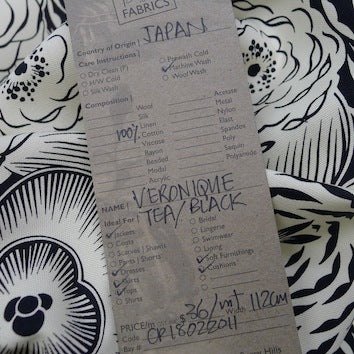 FABRICS
Country of Origin JAPAN
Care Instructions
Dry Clean (P) Prewash Cold
H/W Cold Machine Wash
Silk Wash Wool Wash
Composition
Wool Acetate
Silk Metal
Linen Nylon
100% Cotton Elastan
Viscose Spandex
Rayon Poly
Beaded Sequin
Modal Polyamide
Acrylic
NAME VERONIQUE
TEA/BLACK
Ideal For Bridal
Jackets Lingerie
Coats Swimwear
Scarves | Shawls Lining
Pants | Shorts Soft Furnishings
Dresses Cushions
Skirts
Tops
Shirts
PRICE/m $36/mt Width 112cm
Code CP18022011
Bay #
Hills